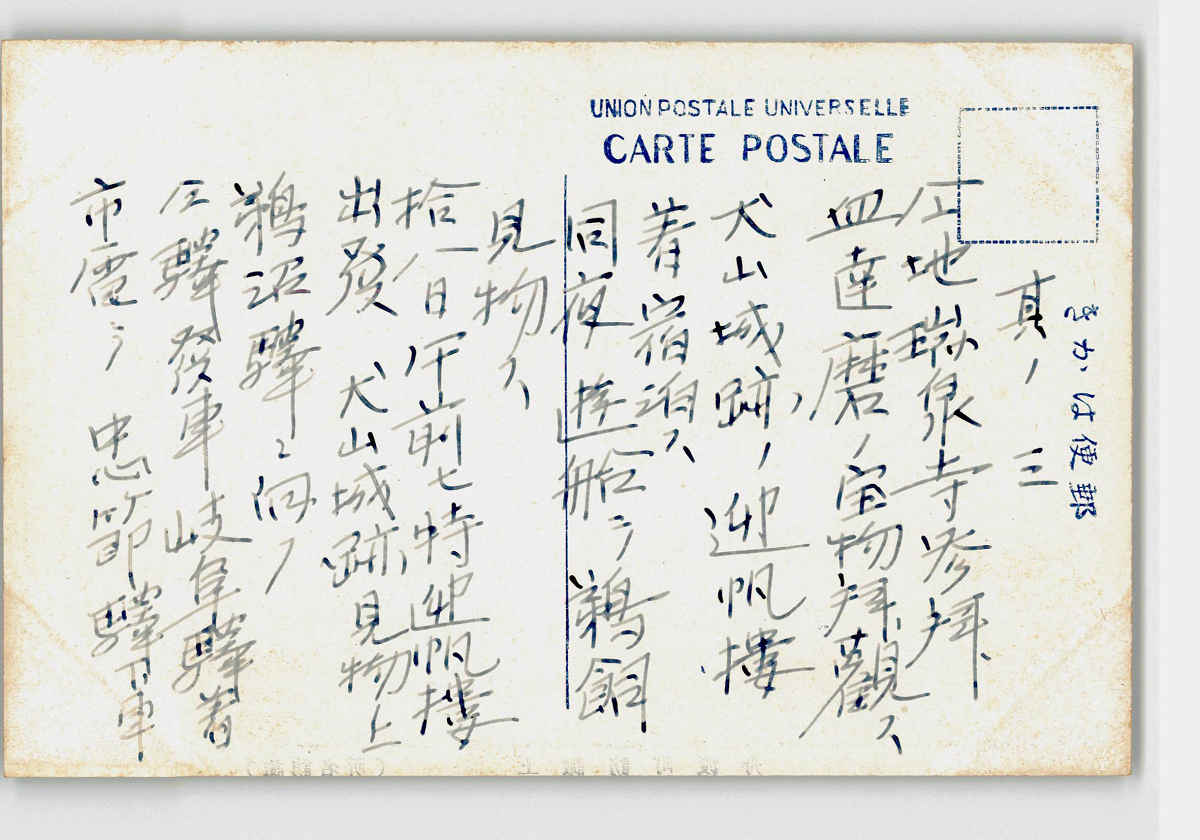 UNION POSTALE UNIVERSELLE
CARTE POSTALE
きかは便郵
其ノ三
仝地瑞泉寺参拝
血達磨ノ宝物拝観ス
犬山城跡ノ迎帆楼
着宿泊ス
同夜遊船ニテ鵜飼
見物ス
拾一日午前七時迎帆楼
出発 犬山城跡見物上
鵜沼驛ニ向フ
仝驛発車岐阜驛着
市電ニテ 忠節驛下車